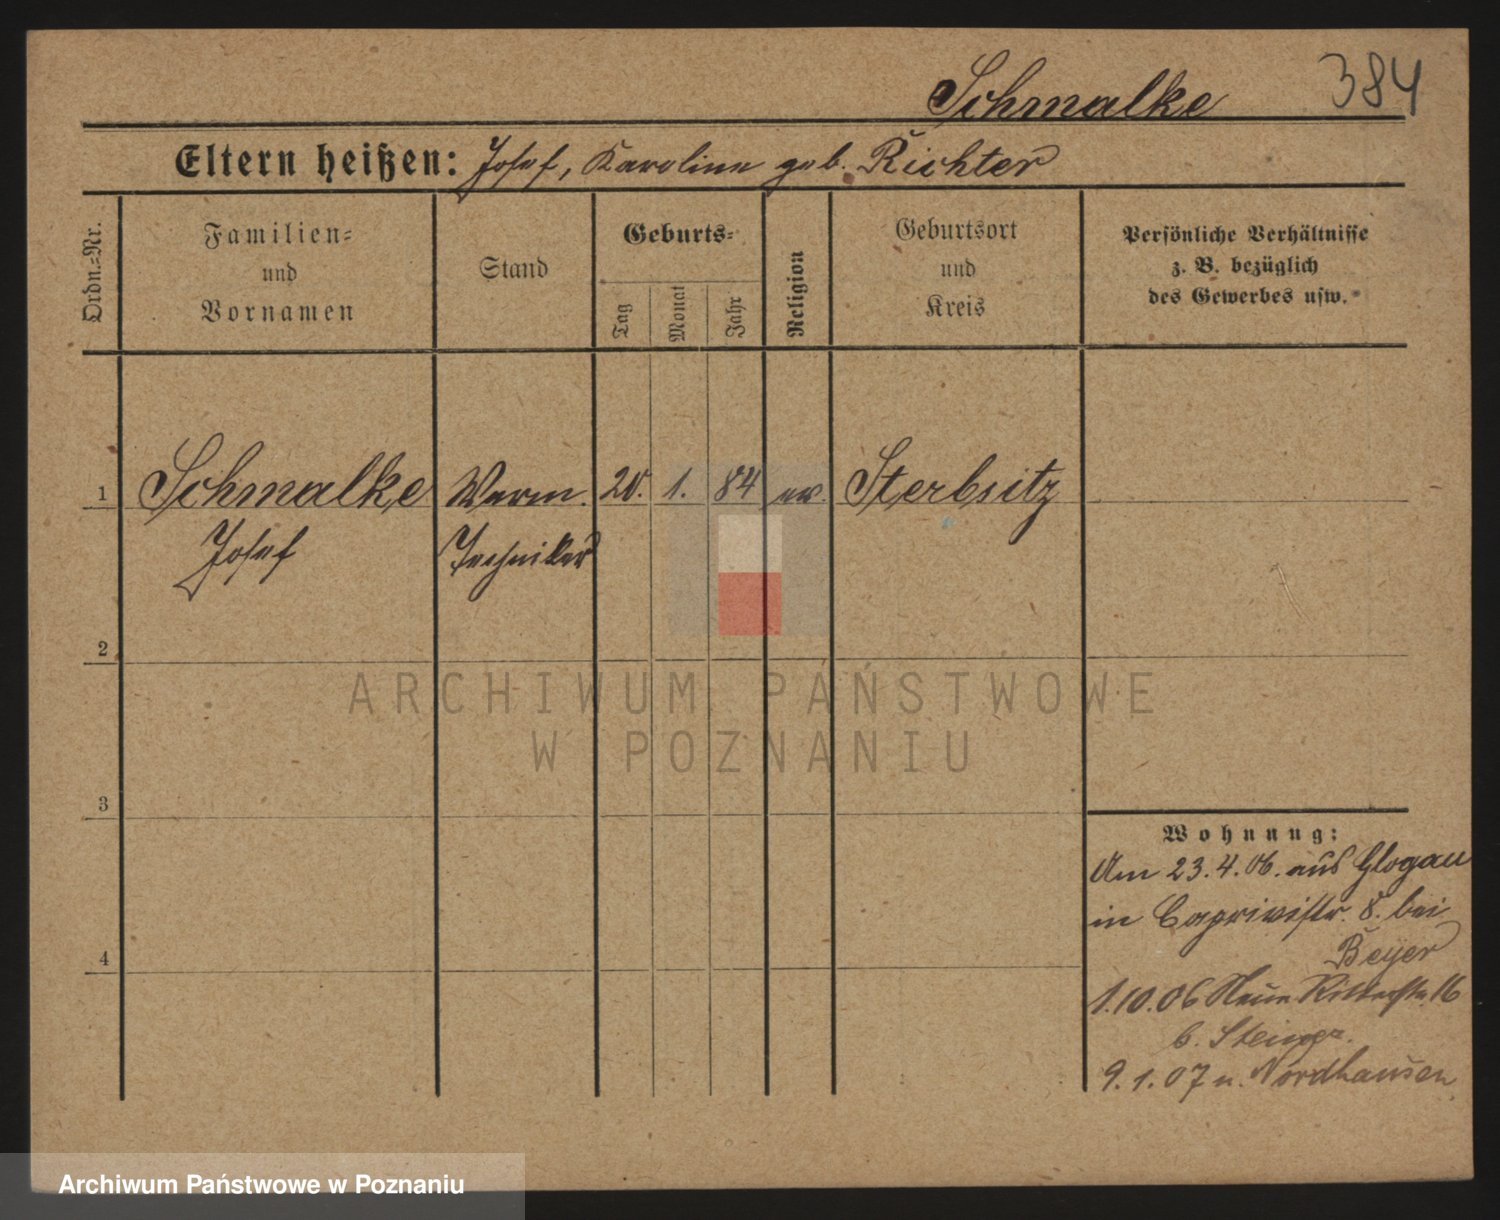 Schmalke 384
Eltern heißen: Josef, Karoline geb. Richter
Ordn.=Nr.
Familien=
und
Vornamen
Stand
Geburts=
Tag
Monat
Jahr
Religion
Geburtsort
und
Kreis
Persönliche Verhältnisse
z. B. bezüglich
des Gewerbes usw.
1 Schmalke Verm. 20. 1. 84 ev. Sterbsitz
Josef Techniker
2
3
4
Wohnung:
Am 23.4.06. aus Glogau
in Caprivistr. 8. bei
Beyer
1.10.06 Neue Ritterstr. 16
b.
9.1.07 n. Nordhausen
ARCHIWUM PAŃSTWOWE
W POZNANIU
Archiwum Państwowe w Poznaniu